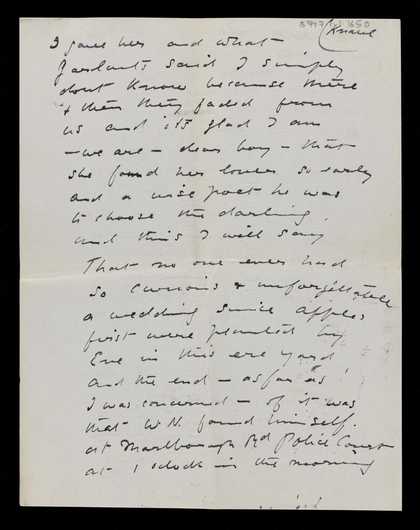 I gave her and what
said I simply
dont know because there
& then they faded from
us and it's glad I am
— we are — dear boy — that
she found her lover so early
and a wise poet he was
to choose the darling.
And this I will say
That no one ever had
so curious & unforgettable
a wedding since apples
first were planted by
Eve in this ere yard
And the end — as far as
I was concerned — of it was
that W.N. found himself
at Marlborough Rd Police Court
at 1 o'clock in the morning